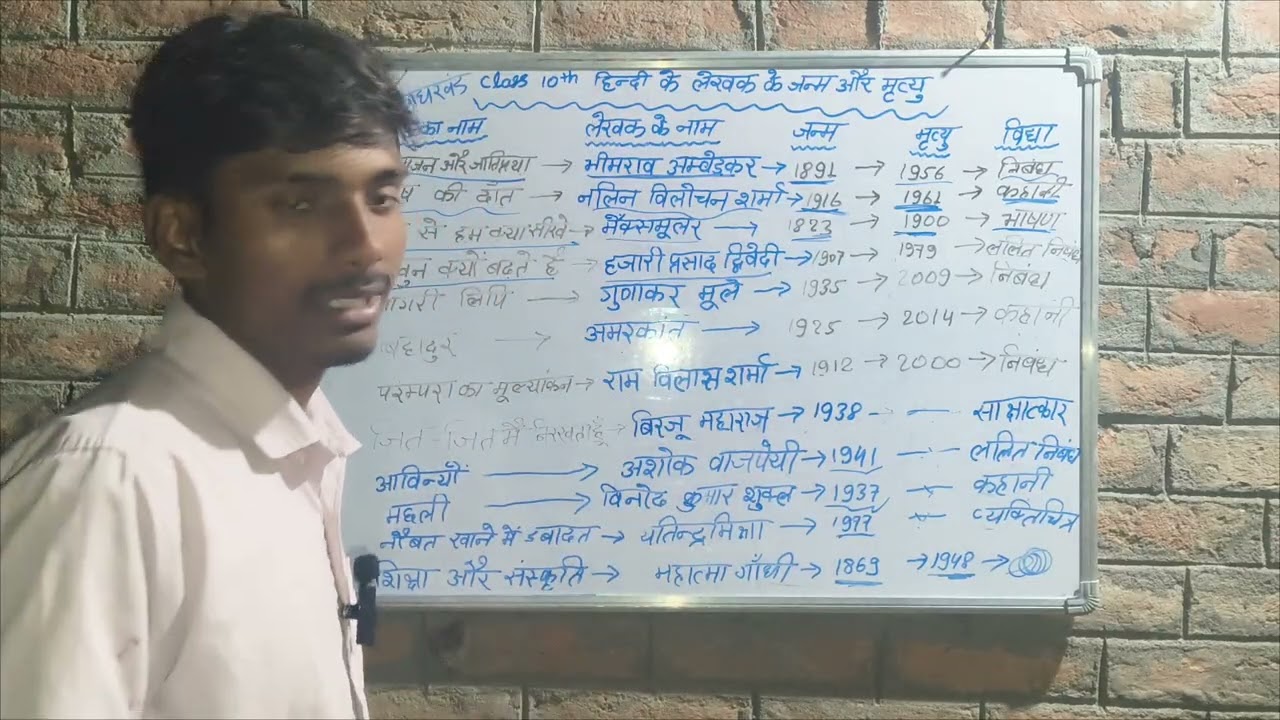 Class 10th हिन्दी के लेखक के जन्म और मृत्यु
का नाम लेखक के नाम जन्म मृत्यु विद्या
और जातिप्रथा → भीमराव अम्बेडकर → 1891 → 1956 → निबंध
की दाँत → नलिन विलोचन शर्मा → 1916 → 1961 → कहानी
से हम क्या सीखें → मैक्समूलर → 1823 → 1900 → भाषण
क्यों बढ़ते हैं → हजारी प्रसाद द्विवेदी → 1907 → 1979 → ललित निबंध
लिपि → गुणाकर मूले → 1935 → 2009 → निबंध
बहादुर → अमरकांत → 1925 → 2014 → कहानी
परम्परा का मूल्यांकन → राम विलास शर्मा → 1912 → 2000 → निबंध
जित-जित मैं निरखत हूँ → बिरजू महाराज → 1938 - — साक्षात्कार
आविन्यों → अशोक वाजपेयी → 1941 — - ललित निबंध
मछली → विनोद कुमार शुक्ल → 1937 — कहानी
खाने में इबादत → यतिन्द्र मिश्रा → 1977 — व्यक्तिचित्र
शिक्षा और संस्कृति → महात्मा गाँधी → 1869 → 1948 →